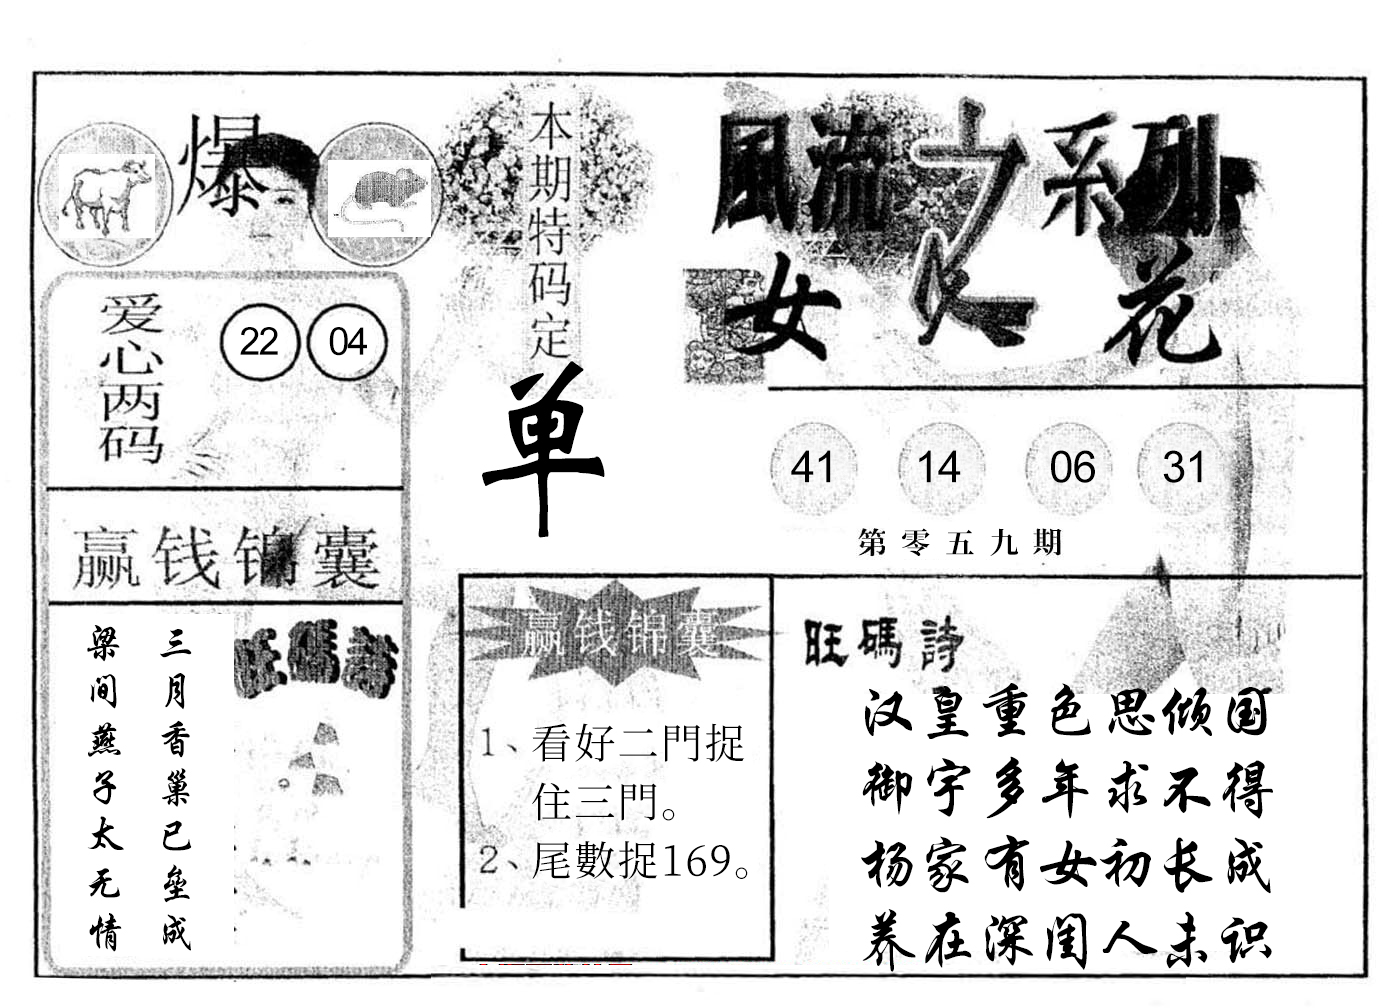 爆
本期特码定
单
爱心两码
22 04
赢钱锦囊
旺碼詩
三月香巢已垒成
梁间燕子太无情
風流之系列
女人花
41 14 06 31
第零五九期
赢钱锦囊
1、看好二門捉
住三門。
2、尾數捉169。
旺碼詩
汉皇重色思倾国
御宇多年求不得
杨家有女初长成
养在深闺人未识